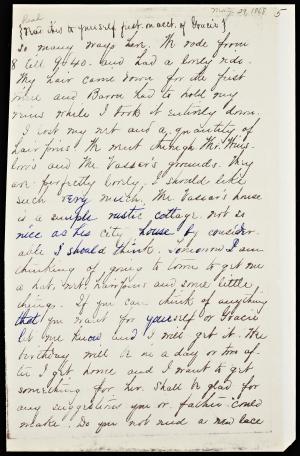 May 29, 1868 5
Read
{Read this to yourself first on acct. of Gracie's}
so many ways here. We rode from
8 till 9.40. and had a lovely ride.
My hair came down for the first
time and Baron had to hold my
reins while I took it entirely down.
I lost my net and a quantity of
hair pins. We went through Mr.
and Mr Vassar's grounds. They
are perfectly lovely. I should like
such very much. Mr Vassar's house
is a simple rustic cottage not so
nice as his city house by consider-
able I should think. Tomorrow I am
thinking of going to town to get me
a hat, net, hairpins and some little
things. If you can think of anything
that you want for yourself or Gracie
let me know and I will get it. Her
birthday will be in a day or two af-
ter I get home and I want to get
something for her. Shall be glad for
any suggestions you or father could
make. Do you not need a new lace